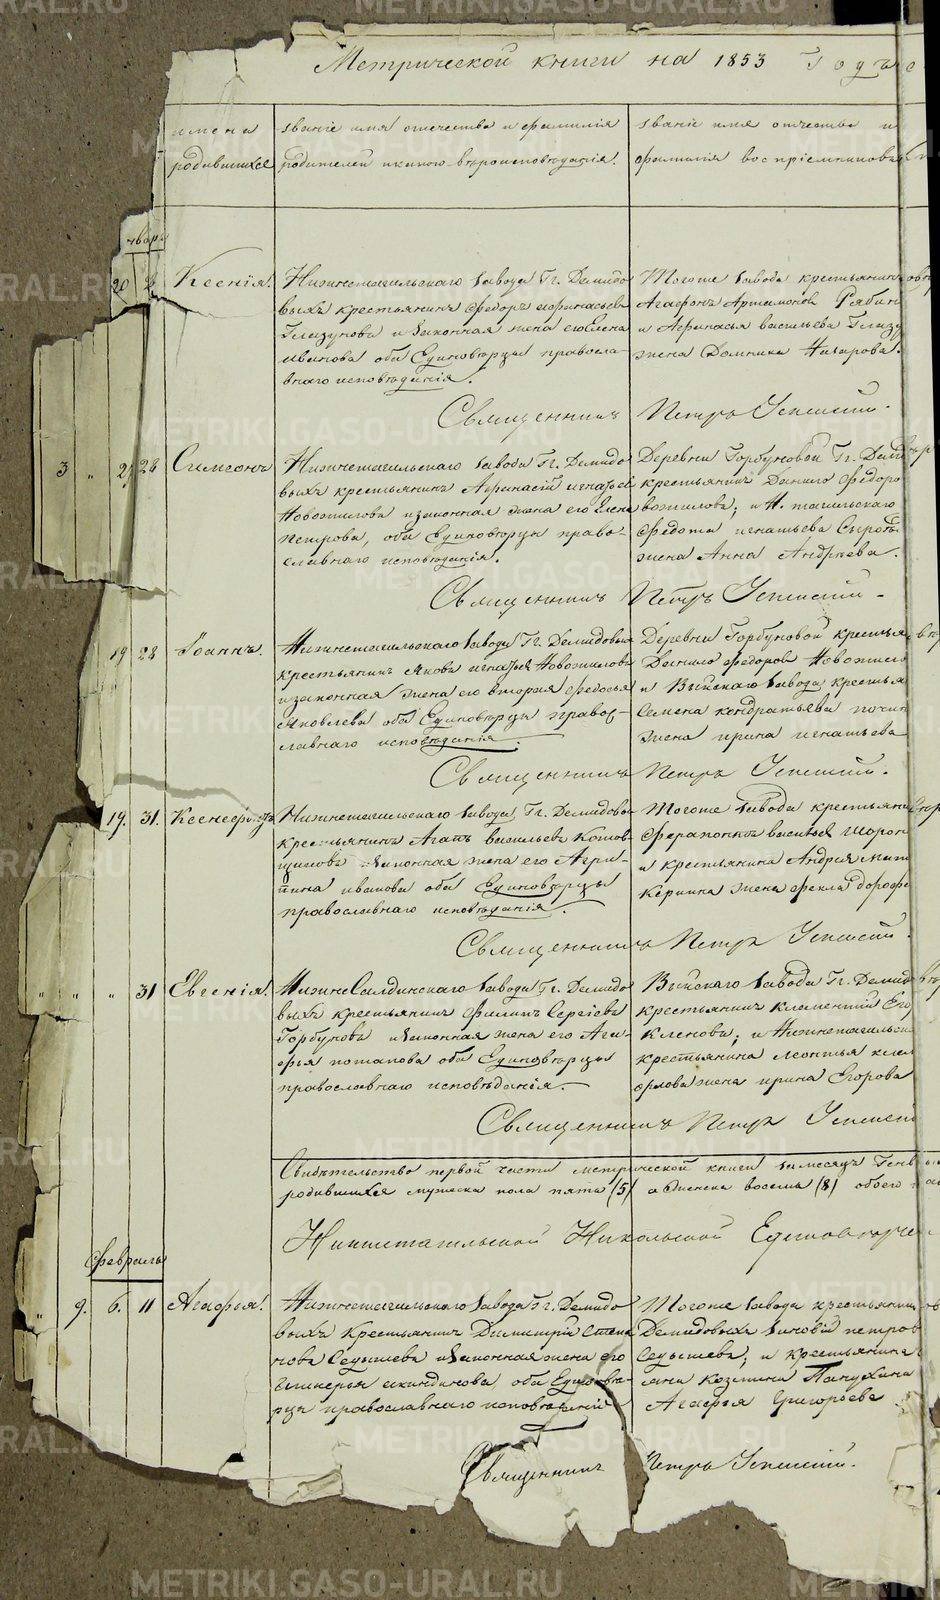 Метрической книги на 1853 Годъ
имена
родившихся
званіе имя отечество и фамилія
родителей и какого вѣроисповѣданія.
званіе имя отчество и
фамилія воспріемниковъ
20
Ксенія.
Нижнетагильскаго завода Гг. Демидо
выхъ крестьянинъ Федоръ
Глазуновъ и законная жена его Елена
Иванова оба Единовѣрцы правосла-
внаго исповѣданія.
Тогоже завода крестьянинъ
Агафонъ Артамоновъ Рябин
и Афанасья Васильева Глазу
жена Домника Назарова.
Священникъ Петръ Успенскій.
3 " 28
Симеонъ
Нижнетагильскаго завода Гг. Демидо
выхъ крестьянинъ Афанасій Игнатьев
Новожилова и законная жена его Елена
Петрова, оба Единовѣрцы право-
славнаго исповѣданія.
Деревни Горбуновой Гг. Деми
крестьянинъ Данило Федоро
вожилова; и Н. Тагильскаго
Федота Игнатьева
жена Анна Андреева.
Священникъ Петръ Успенскій.
19 28
Іоаннъ.
Нижнетагильскаго завода Гг. Демидовыхъ
крестьянинъ Яковъ Игнатьев Новожиловъ
и законная жена его вторая Федосья
Яковлева оба Единовѣрцы правос-
лавнаго исповѣданія.
Деревни Горбуновой крестья
Данило Федоровъ Новожил
и Выйскаго завода крестья
Семена Кондратьева
жена Ирина Игнатьева
Священникъ Петръ Успенскій.
19. 31.
Ксенофонтъ
Нижнетагильскаго завода, Гг. Демидовы
крестьянинъ Агапъ Васильевъ Котов
щиковъ и законная жена его Агри-
пина Иванова оба Единовѣрцы
православнаго исповѣданія.
Тогоже завода крестьяни
Ферапонтъ Васильев
и крестьянина Андрея
жена Фекла Дорофе
Священникъ Петръ Успенскій.
" " " 31
Евгенія.
НижнеСалдинскаго завода Гг. Демидо
выхъ крестьянинъ Филипъ Сергѣевъ
Горбуновъ и законная жена его Ага-
фья Потапова оба Единовѣрцы
православнаго исповѣданія.
Выйскаго завода Гг. Демид
крестьянинъ Климентій Его
Кленовъ; и Нижнетагильск
крестьянина Леонтья
Орлова жена Ирина Егорова
Священникъ Петръ Успенскій
Свидѣтельство первой части метрической книги за месяцъ Генв
родившихся мужеска пола пять (5) а женска восемь (8) обоего
Нижнетагильской Никольской Единовѣрче
Февраль
9. 6. 11
Агафья.
Нижнетагильскаго завода Гг. Демидо
выхъ Крестьянинъ Димитрій Степа
новъ Седышевъ и законная жена его
Гликерья оба Единовѣ-
рцы православнаго исповѣданія
Тогоже завода крестьянинъ
Демидовыхъ Зиновій Петров
Седышевъ; и крестьянина
Козмина
Агафья Григорьева
Священникъ Петръ Успенскій.
METRIKI.GASO-URAL.RU